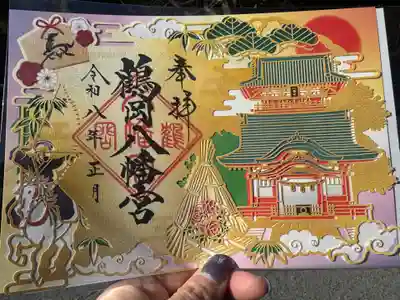 奉拝
鶴岡八幡宮
令和八年正月